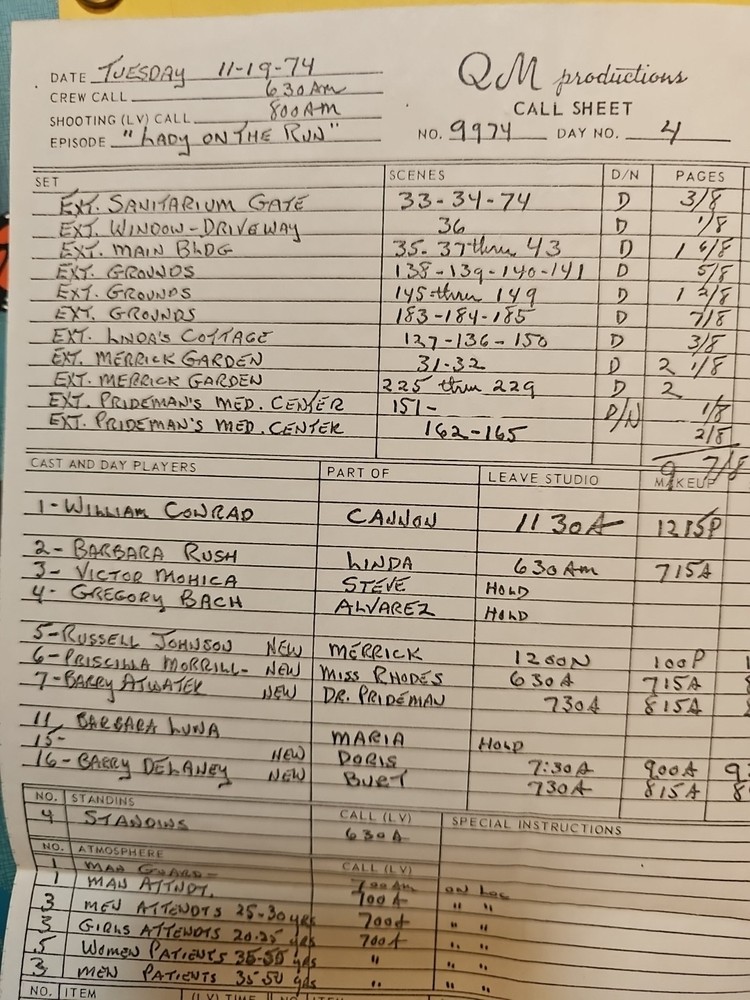 DATE TUESDAY 11-19-74
CREW CALL 630AM
SHOOTING (LV) CALL 800AM
EPISODE "LADY ON THE RUN"
QM productions
CALL SHEET
NO. 9974 DAY NO. 4
SET SCENES D/N PAGES
EXT. SANITARIUM GATE 33-34-74 D 3/8
EXT. WINDOW-DRIVEWAY 36 D 1/8
EXT. MAIN BLDG 35-37 thru 43 D 1 6/8
EXT. GROUNDS 138-139-140-141 D 5/8
EXT. GROUNDS 145 thru 149 D 1 2/8
EXT. GROUNDS 183-184-185 D 7/8
EXT. LINDA'S COTTAGE 127-136-150 D 3/8
EXT. MERRICK GARDEN 31-32 D 2 1/8
EXT. MERRICK GARDEN 225 thru 229 D 2
EXT. PRIDEMAN'S MED. CENTER 151- D/N 1/8
EXT. PRIDEMAN'S MED. CENTER 162-165 2/8
9 7/8
CAST AND DAY PLAYERS PART OF LEAVE STUDIO MAKEUP
1-WILLIAM CONRAD CANNON 1130A 1215P
2-BARBARA RUSH LINDA 630AM 715A
3-VICTOR MOHICA STEVE HOLD
4-GREGORY BACH ALVAREZ HOLD
5-RUSSELL JOHNSON NEW MERRICK 1200N 100P
6-PRISCILLA MORRILL- NEW MISS RHODES 630A 715A
7-BARRY ATWATER NEW DR. PRIDEMAN 730A 815A
11 BARBARA LUNA MARIA HOLD
15- NEW DORIS 7:30A 900A
16-BARRY DELANEY NEW BURT 730A 815A
NO. STANDINS CALL (LV) SPECIAL INSTRUCTIONS
4 STANDINS 630A
NO. ATMOSPHERE CALL (LV)
1 MAN GUARD- 700AM ON LOC
1 MAN ATTNDT. 700A " "
3 MEN ATTENDTS 25-30 yrs 700A " "
3 GIRLS ATTENDTS 20-25 yrs 700A " "
5 WOMEN PATIENTS 35-50 yrs " " "
3 MEN PATIENTS 35-50 yrs " " "
NO. ITEM (LV) TIME NO. ITEM